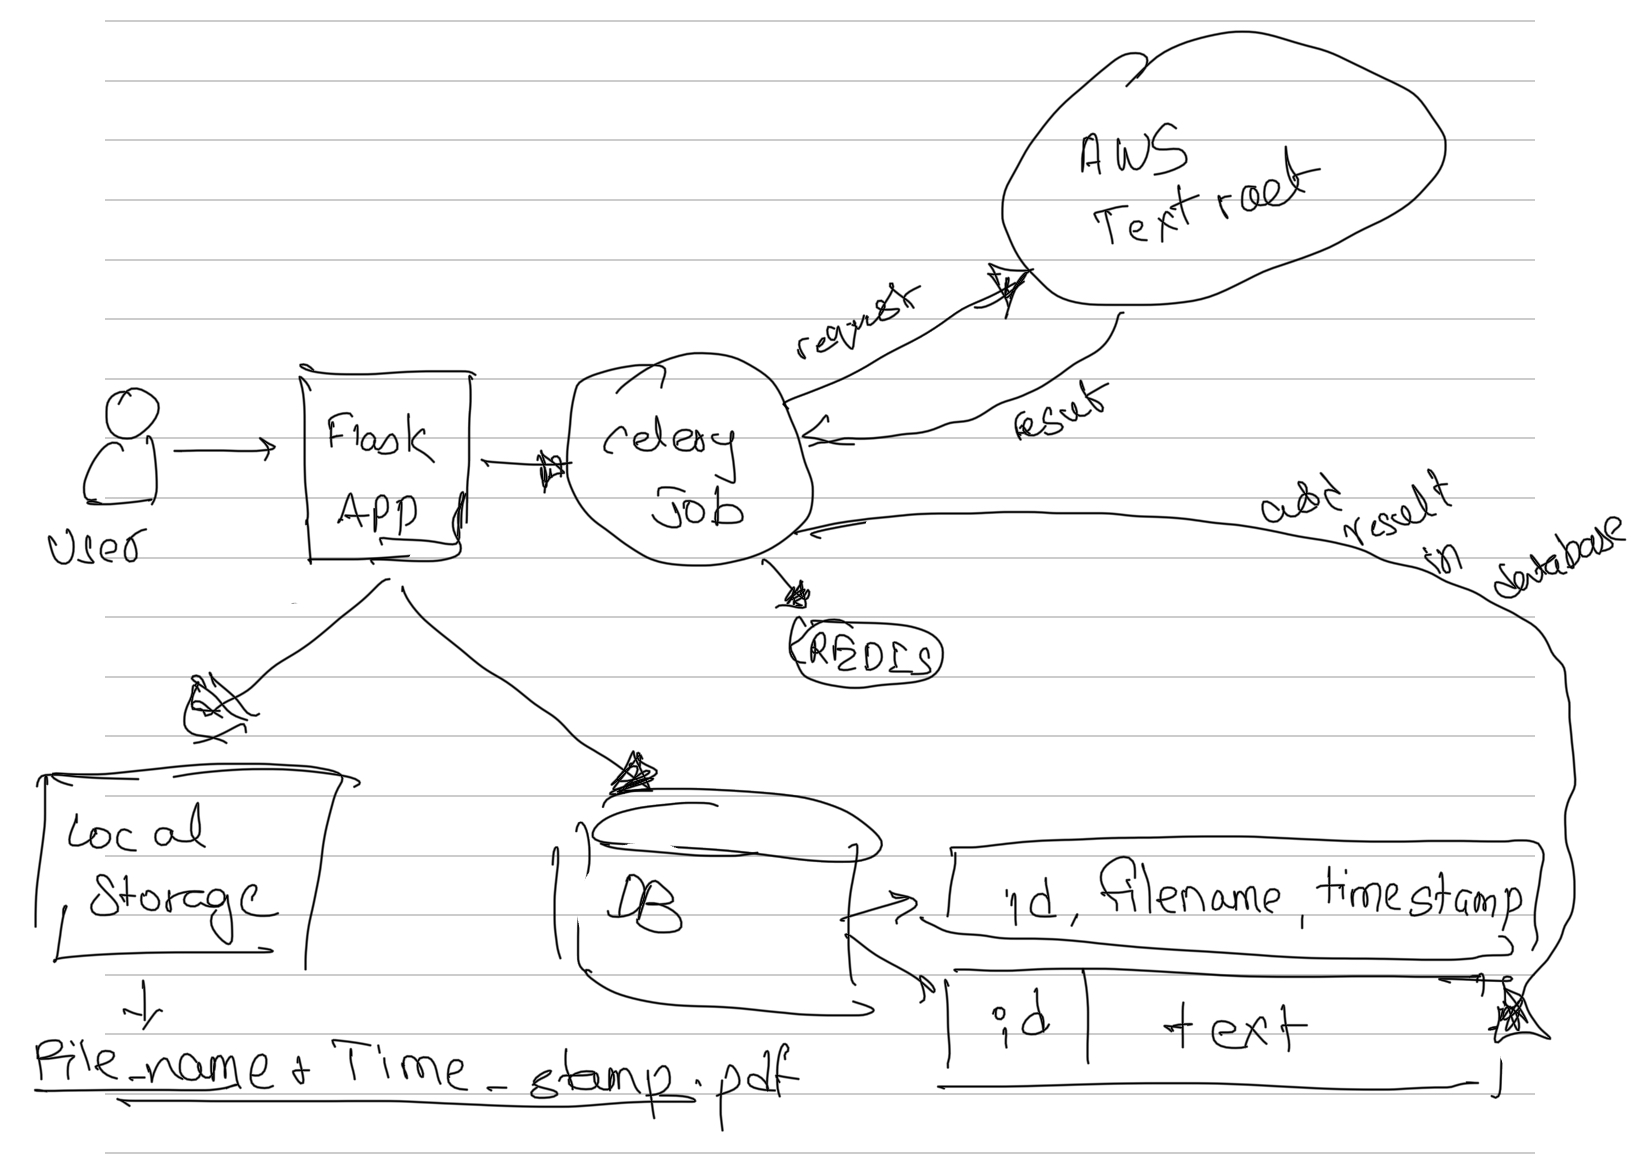 AWS
Textract
request
result
Flask
App
celery
Job
User
add result in database
REDIS
Local
Storage
DB
id, filename, timestamp
id text
File_name + Time_stamp.pdf